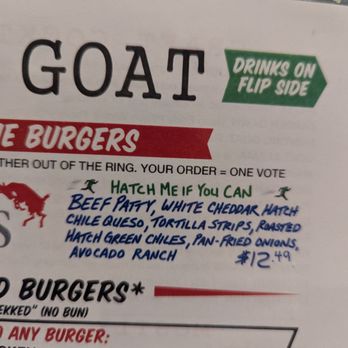 GOAT
DRINKS ON
FLIP SIDE
E BURGERS
THER OUT OF THE RING. YOUR ORDER = ONE VOTE
HATCH ME IF YOU CAN
BEEF PATTY, WHITE CHEDDAR, HATCH
CHILE QUESO, TORTILLA STRIPS, ROASTED
HATCH GREEN CHILES, PAN-FRIED ONIONS,
AVOCADO RANCH $12.49
S
D BURGERS*
EKKED" (NO BUN)
O ANY BURGER: